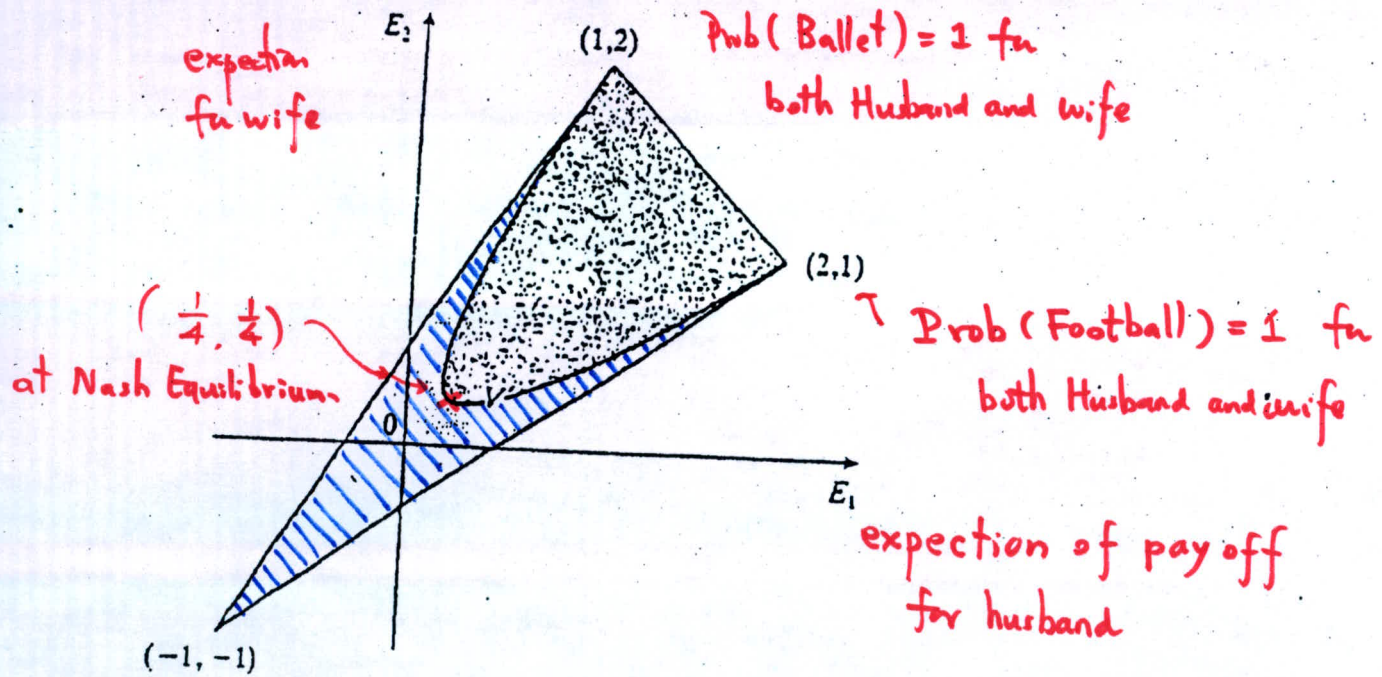 E₂
expection
fu wife
(1,2)
Prob(Ballet) = 1 fu
both Husband and wife
(2,1)
Prob(Football) = 1 fu
both Husband and wife
(1/4, 1/4)
at Nash Equilibrium.
0
E₁
expection of pay off
for husband
(-1, -1)